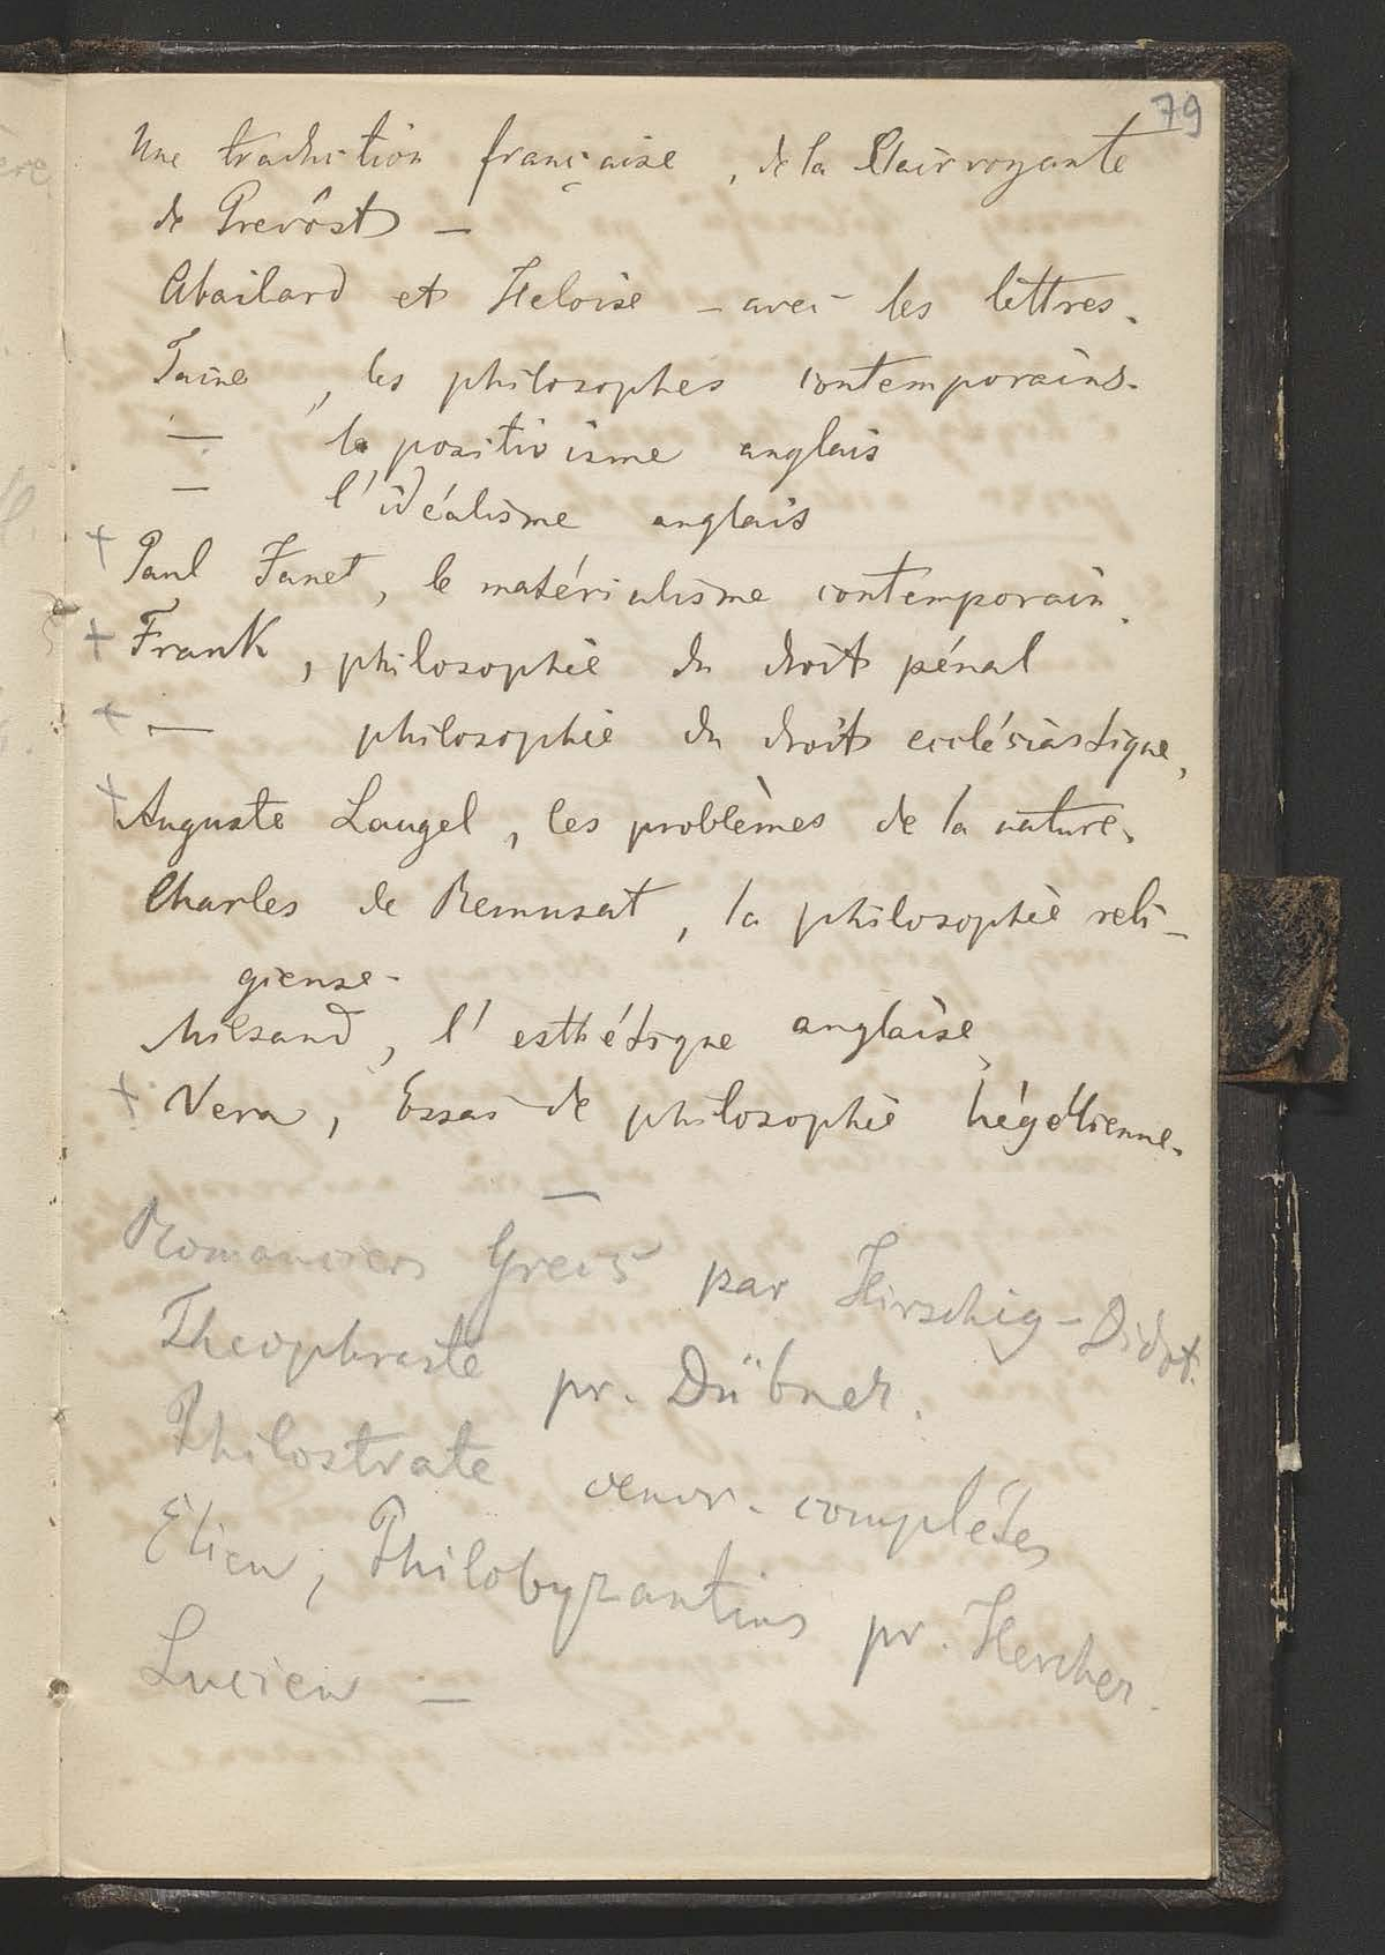 79
Une traduction française, de la Clairvoyante
de Prevôst –
Abailard et Heloise – avec les lettres.
Taine, les philosophes contemporains.
— le positivisme anglais
— l'idéalisme anglais
+ Paul Janet, le matérialisme contemporain.
+ Frank, philosophie du droit pénal
+ — philosophie du droit ecclésiastique,
+ Auguste Laugel, les problèmes de la nature.
Charles de Remusat, la philosophie reli-
gieuse.
Milsand, l'esthétique anglaise,
+ Vera, Essai de philosophie hégélienne.
—
Romanciers Grecs par Hirschig – Didot.
Theophraste pr. Dübner.
Philostrate oeuvr. complétes
Elien, Philobyzantins pr. Hercher.
Lucien –